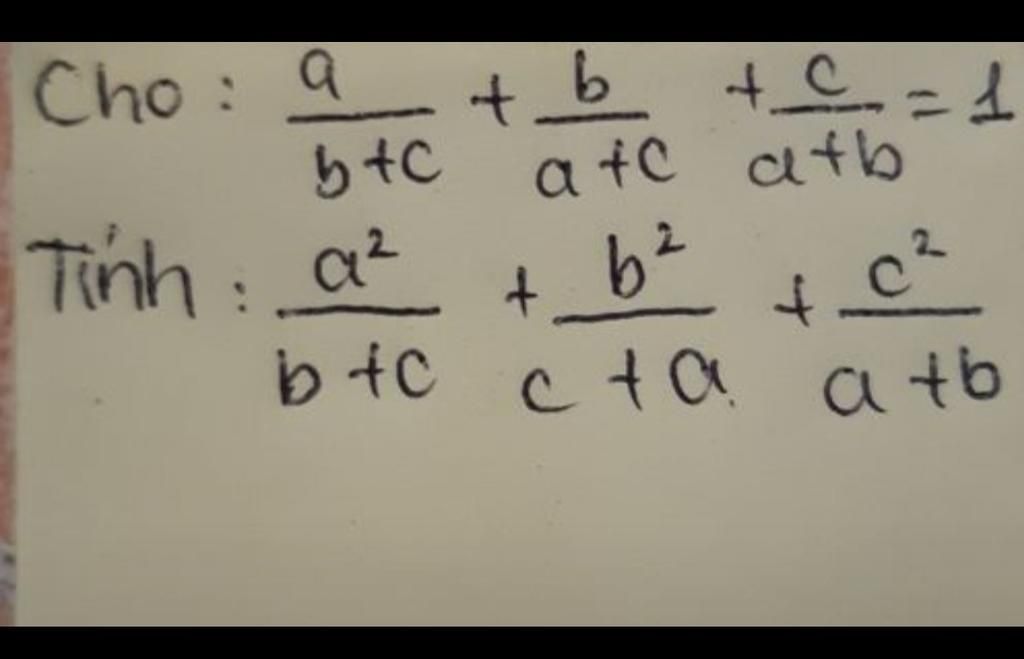 Cho : a/(b+c) + b/(a+c) + c/(a+b) = 1
Tính : a²/(b+c) + b²/(c+a) + c²/(a+b)